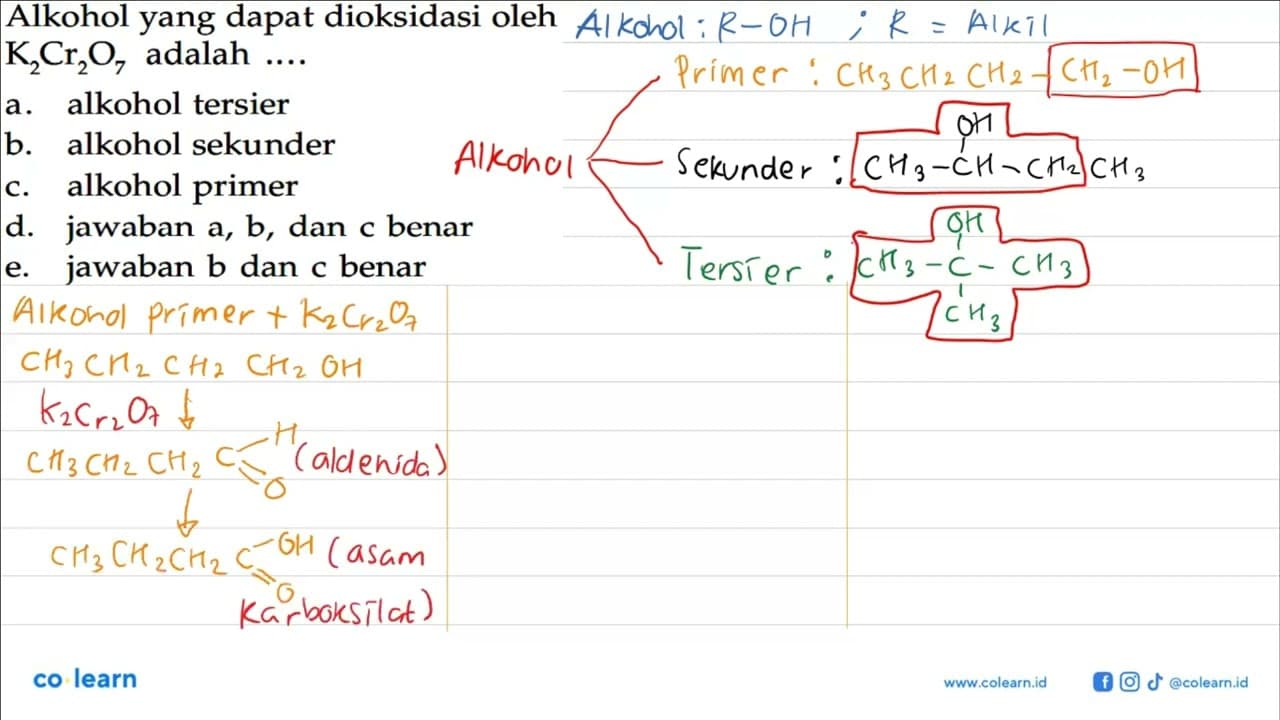 Alkohol yang dapat dioksidasi oleh
K₂Cr₂O₇ adalah ....
a. alkohol tersier
b. alkohol sekunder
c. alkohol primer
d. jawaban a, b, dan c benar
e. jawaban b dan c benar
Alkohol : R-OH ; R = Alkil
Alkohol
Primer : CH₃ CH₂ CH₂ - CH₂ - OH
OH
Sekunder : CH₃ - CH - CH₂ CH₃
OH
Tersier : CH₃ - C - CH₃
CH₃
Alkohol primer + K₂Cr₂O₇
CH₃ CH₂ CH₂ CH₂ OH
K₂Cr₂O₇ ↓
H
CH₃ CH₂ CH₂ C (aldehida)
O
↓
CH₃ CH₂ CH₂ C - OH (asam
O
karboksilat)
co learn
www.colearn.id
@colearn.id